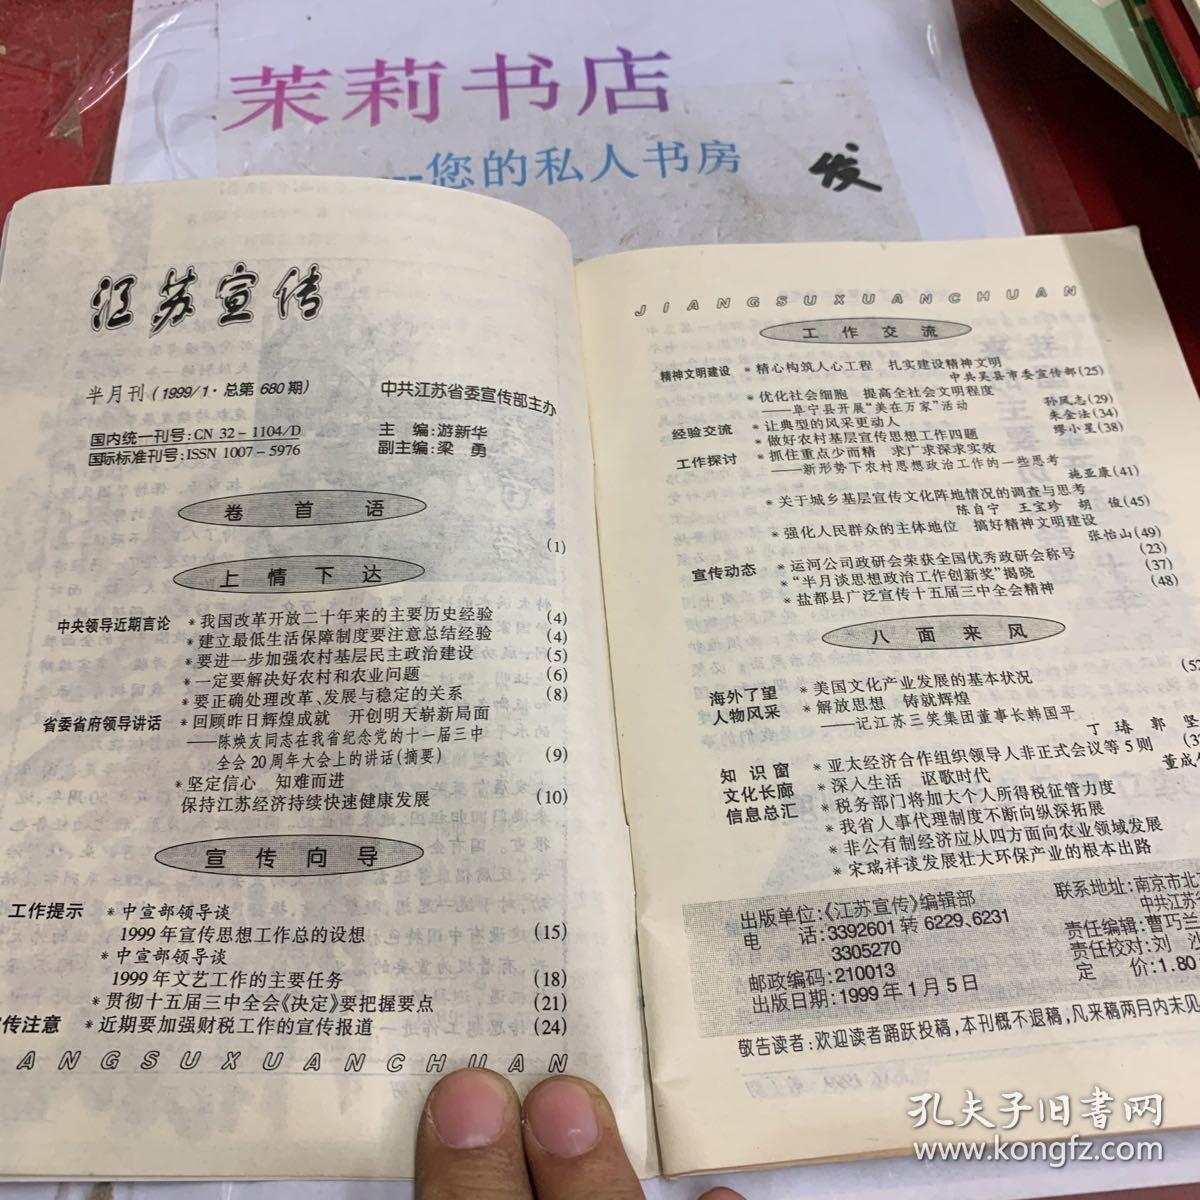 茉莉书店
--您的私人书房
发
江苏宣传
半月刊(1999/1·总第680期)
中共江苏省委宣传部主办
国内统一刊号:CN 32-1104/D
国际标准刊号:ISSN 1007-5976
主 编:游新华
副主编:梁 勇
卷首语
(1)
上情下达
中央领导近期言论 *我国改革开放二十年来的主要历史经验 (4)
*建立最低生活保障制度要注意总结经验 (4)
*要进一步加强农村基层民主政治建设 (5)
*一定要解决好农村和农业问题 (6)
*要正确处理改革、发展与稳定的关系 (8)
省委省府领导讲话 *回顾昨日辉煌成就 开创明天崭新局面
——陈焕友同志在我省纪念党的十一届三中
全会20周年大会上的讲话(摘要) (9)
*坚定信心 知难而进
保持江苏经济持续快速健康发展 (10)
宣传向导
工作提示 *中宣部领导谈
1999年宣传思想工作总的设想 (15)
*中宣部领导谈
1999年文艺工作的主要任务 (18)
*贯彻十五届三中全会《决定》要把握要点 (21)
传注意 *近期要加强财税工作的宣传报道 (24)
ANGSUXUANCHUAN
JIANGSUXUANCHUAN
工作交流
精神文明建设 *精心构筑人心工程 扎实建设精神文明
中共吴县市委宣传部(25)
*优化社会细胞 提高全社会文明程度
——阜宁县开展“美在万家”活动 孙凤志(29)
经验交流 *让典型的风采更动人 朱金法(34)
*做好农村基层宣传思想工作四题 缪小星(38)
工作探讨 *抓住重点少而精 求广求深求实效
——新形势下农村思想政治工作的一些思考
施亚康(41)
*关于城乡基层宣传文化阵地情况的调查与思考
陈自宁 王宝珍 胡 俊(45)
*强化人民群众的主体地位 搞好精神文明建设
张怡山(49)
宣传动态 *运河公司政研会荣获全国优秀政研会称号 (23)
*“半月谈思想政治工作创新奖”揭晓 (37)
*盐都县广泛宣传十五届三中全会精神 (48)
八面来风
海外了望 *美国文化产业发展的基本状况
人物风采 *解放思想 铸就辉煌
——记江苏三笑集团董事长韩国平
丁 瑃 郭 坚
知识窗 *亚太经济合作组织领导人非正式会议等5则
文化长廊 *深入生活 讴歌时代 董成
信息总汇 *税务部门将加大个人所得税征管力度
*我省人事代理制度不断向纵深拓展
*非公有制经济应从四方面向农业领域发展
*宋瑞祥谈发展壮大环保产业的根本出路
出版单位:《江苏宣传》编辑部
电 话:3392601转6229、6231
3305270
邮政编码:210013
出版日期:1999年1月5日
联系地址:南京市北
中共江苏省
责任编辑:曹巧兰
责任校对:刘 沙
定 价:1.80
敬告读者:欢迎读者踊跃投稿,本刊概不退稿,凡来稿两月内未见
孔夫子旧书网
www.kongfz.com